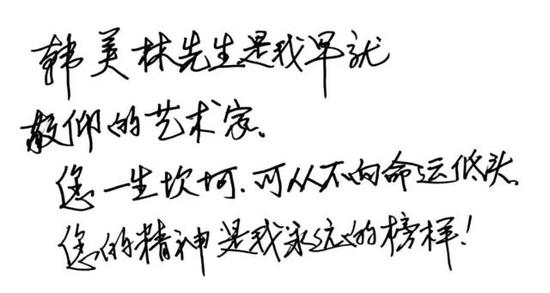 韩美林先生是我早就
敬仰的艺术家。
您一生坎坷.可从不向命运低头.
您的精神是我永远的榜样!